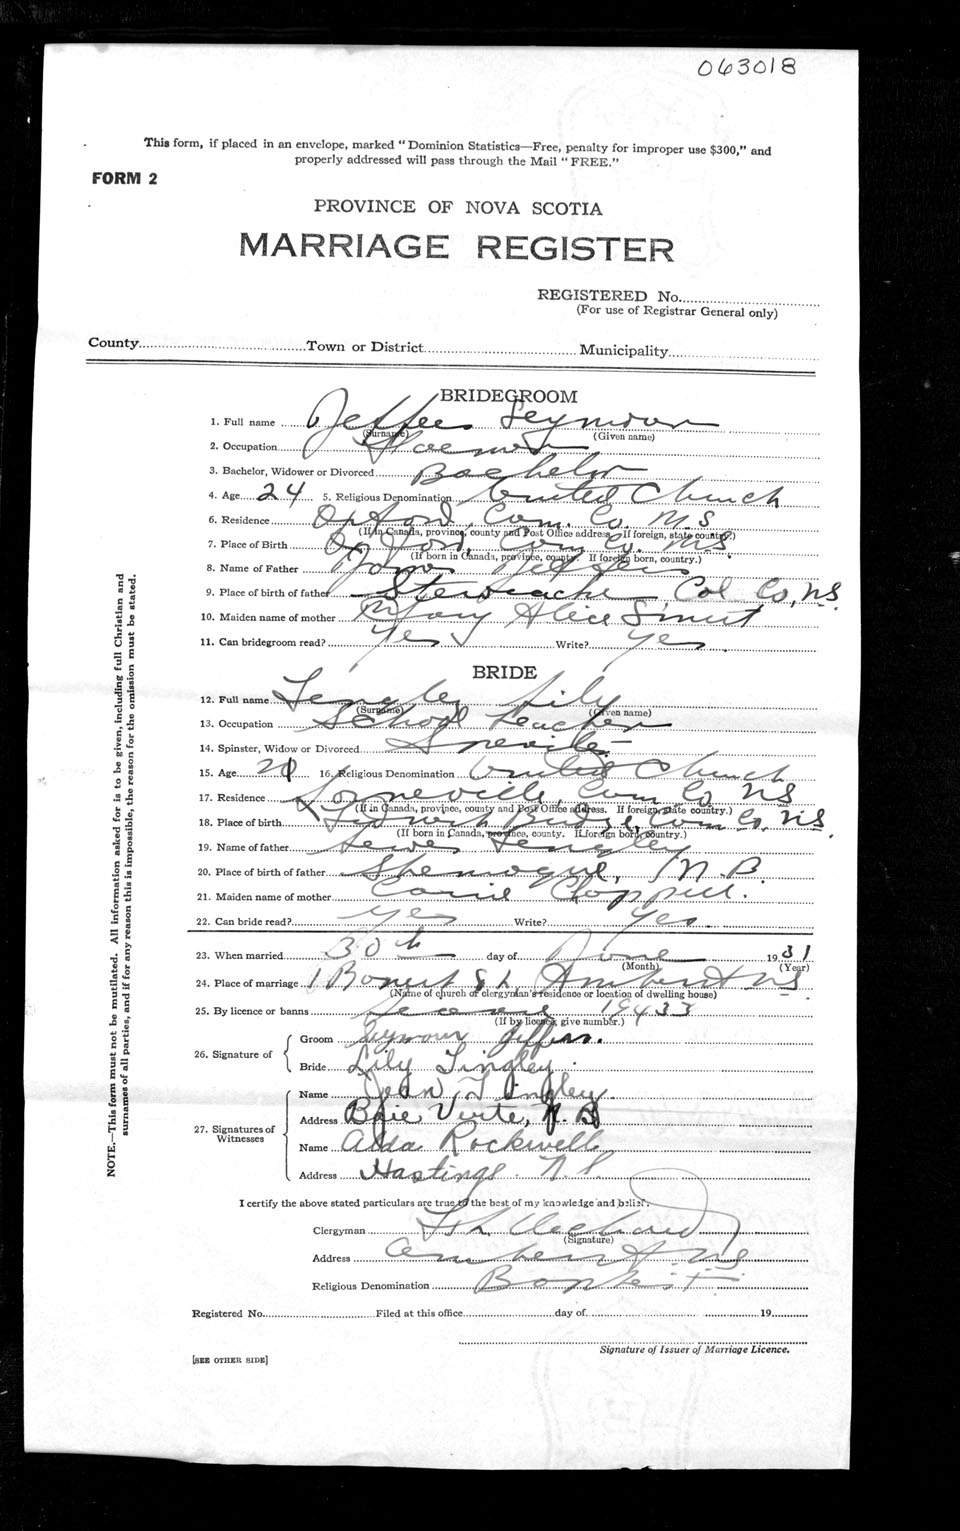 063018
This form, if placed in an envelope, marked "Dominion Statistics—Free, penalty for improper use $300," and
properly addressed will pass through the Mail "FREE."
FORM 2
PROVINCE OF NOVA SCOTIA
MARRIAGE REGISTER
REGISTERED No.
(For use of Registrar General only)
County Town or District Municipality
BRIDEGROOM
1. Full name Jeffers Seymour
(Surname) (Given name)
2. Occupation
3. Bachelor, Widower or Divorced Bachelor
4. Age 24 5. Religious Denomination United Church
6. Residence Oxford, Cum. Co. N.S
(If in Canada, province, county and Post Office address. If foreign, state country.)
7. Place of Birth Oxford, Cum Co. N.S.
(If born in Canada, province, county. If foreign born, country.)
8. Name of Father Jeffers
9. Place of birth of father Col Co, N.S.
10. Maiden name of mother Mary Alice
11. Can bridegroom read? Yes Write? Yes
BRIDE
12. Full name Tingley Lily
(Surname) (Given name)
13. Occupation School Teacher
14. Spinster, Widow or Divorced
15. Age 16. Religious Denomination United Church
17. Residence Lorneville, Cum Co NS
(If in Canada, province, county and Post Office address. If foreign, state country.)
18. Place of birth Tidnish Bridge, Cum Co, NS.
(If born in Canada, province, county. If foreign born, country.)
19. Name of father Tingley
20. Place of birth of father Shemogue, N.B.
21. Maiden name of mother
22. Can bride read? Yes Write? Yes
23. When married 30th day of June 1931
(Month) (Year)
24. Place of marriage Amherst NS
(Name of church or clergyman's residence or location of dwelling house)
25. By licence or banns 19433
(If by licence, give number.)
26. Signature of Groom Seymour Jeffers.
Bride Lily Tingley
27. Signatures of Witnesses Name Jean Tingley
Address Baie Verte, N.B
Name Alda Rockwell
Address Hastings N.S.
I certify the above stated particulars are true to the best of my knowledge and belief.
Clergyman
(Signature)
Address Amherst NS
Religious Denomination Baptist
Registered No. Filed at this office day of 19
Signature of Issuer of Marriage Licence.
[SEE OTHER SIDE]
NOTE.—This form must not be mutilated. All information asked for is to be given, including full Christian and
surnames of all parties, and if for any reason this is impossible, the reason for the omission must be stated.